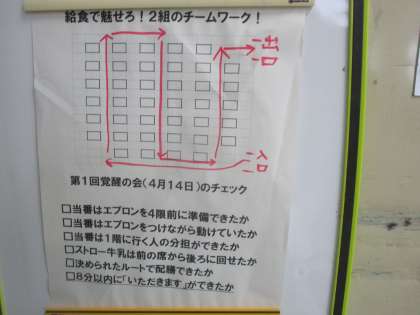 給食で魅せろ！2組のチームワーク！
出口
入口
第1回覚醒の会(4月14日)のチェック
□当番はエプロンを4限前に準備できたか
□当番はエプロンをつけながら動けていたか
□当番は1階に行く人の分担ができたか
□ストロー牛乳は前の席から後ろに回せたか
□決められたルートで配膳できたか
□8分以内に「いただきます」ができたか